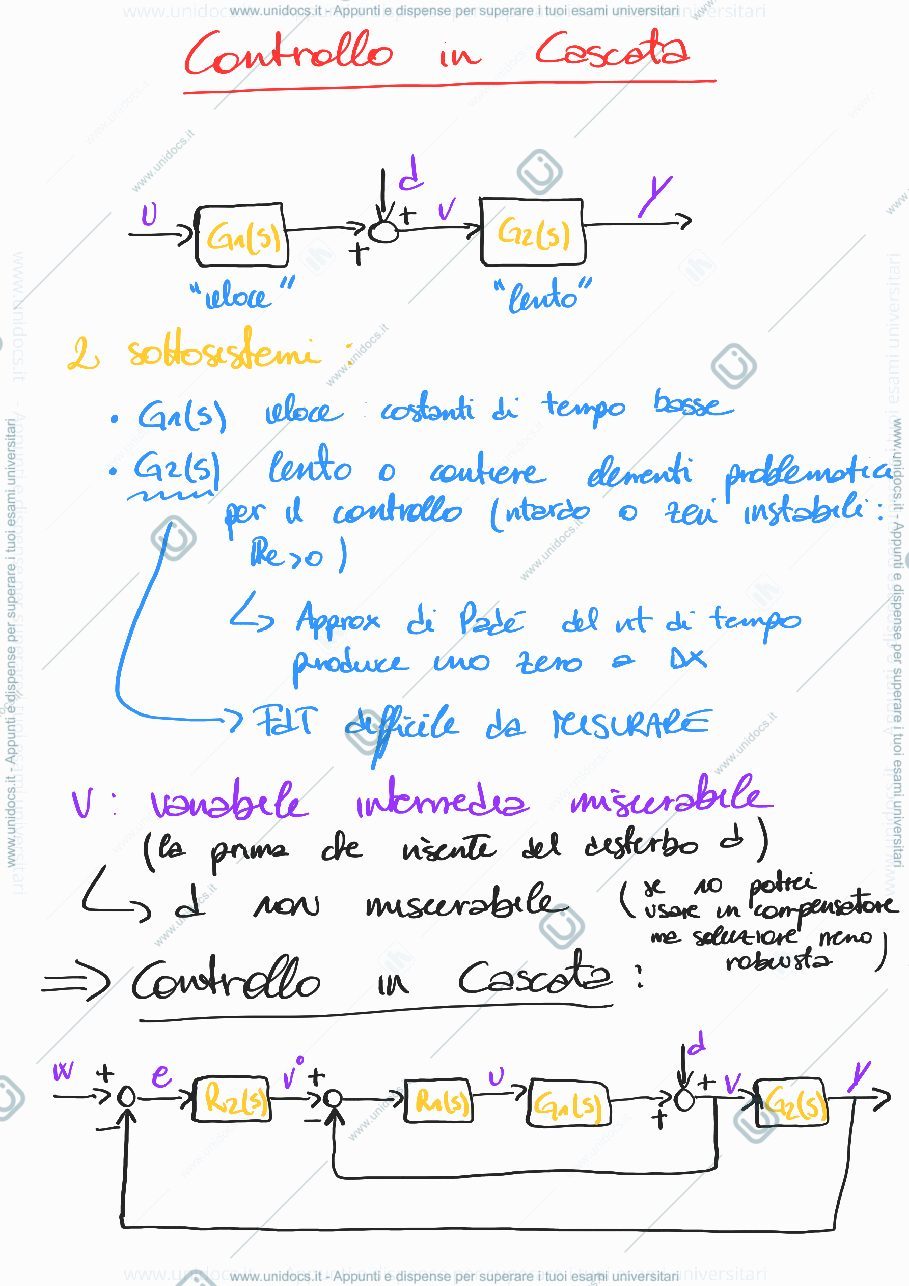 www.unidocs.it - Appunti e dispense per superare i tuoi esami universitari
Controllo in Cascata
d
u G1(s) + + v G2(s) y
"veloce" "lento"
2 sottosistemi:
• G1(s) veloce : costanti di tempo basse
• G2(s) lento o contiene elementi problematici
per il controllo (ritardo o zeri instabili:
Re>0)
↳ Approx di Padé del rit di tempo
produce uno zero a DX
→ FdT difficile da MISURARE
V: variabile intermedia misurabile
(la prima che risente del disturbo d)
↳ d non misurabile (se no potrei
usare un compensatore
ma soluzione meno
robusta)
⇒ Controllo in Cascata:
d
w + e R2(s) v° + R1(s) u G1(s) + + v G2(s) y
− −
www.unidocs.it - Appunti e dispense per superare i tuoi esami universitari